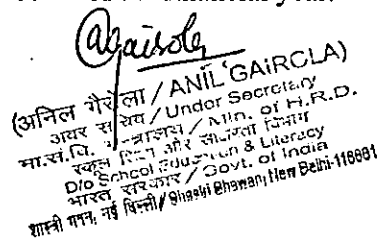 (अनिल गैरोला / ANIL GAIROLA)
अवर सचिव / Under Secretary
मा.सं.वि. मंत्रालय / Min. of H.R.D.
स्कूल शिक्षा और साक्षरता विभाग
D/o School Education & Literacy
भारत सरकार / Govt. of India
शास्त्री भवन, नई दिल्ली / Shastri Bhawan, New Delhi-110001